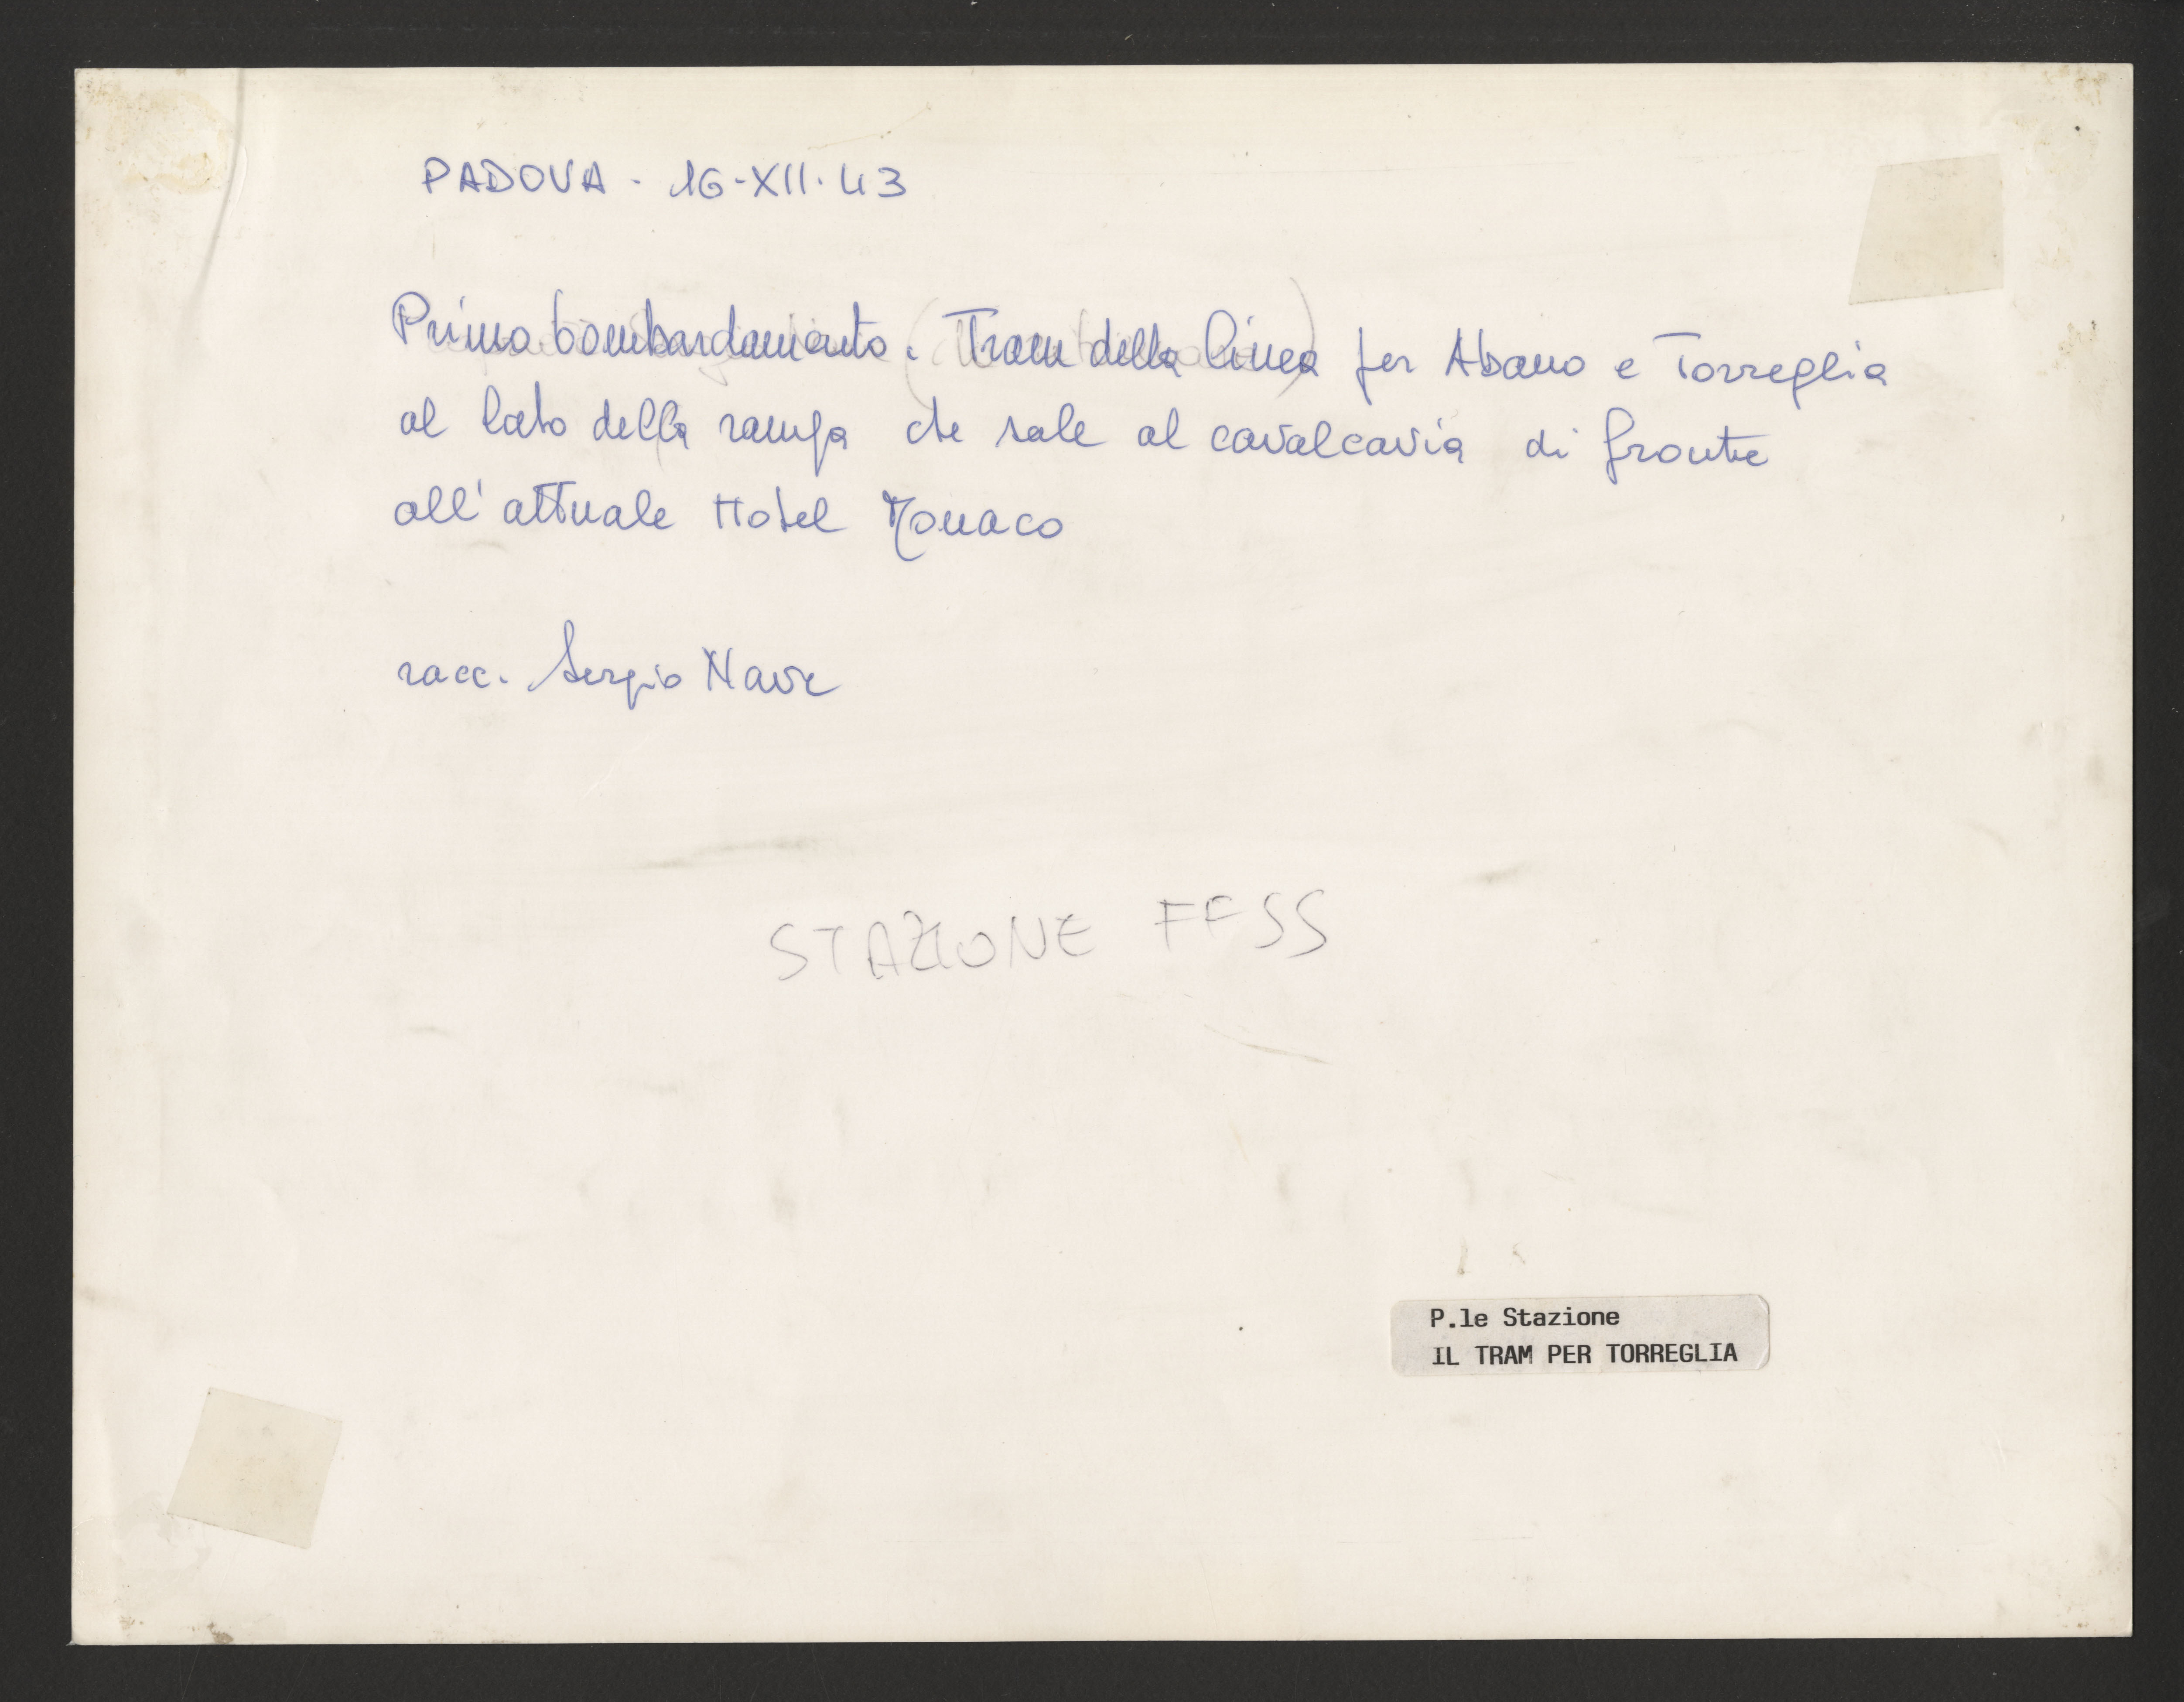 PADOVA - 16-XII-43
Primo bombardamento. Tram della linea per Abano e Torreglia
al lato della rampa che sale al cavalcavia di fronte
all'attuale Hotel Monaco
racc. Sergio Nave
STAZIONE FFSS
P.le Stazione
IL TRAM PER TORREGLIA